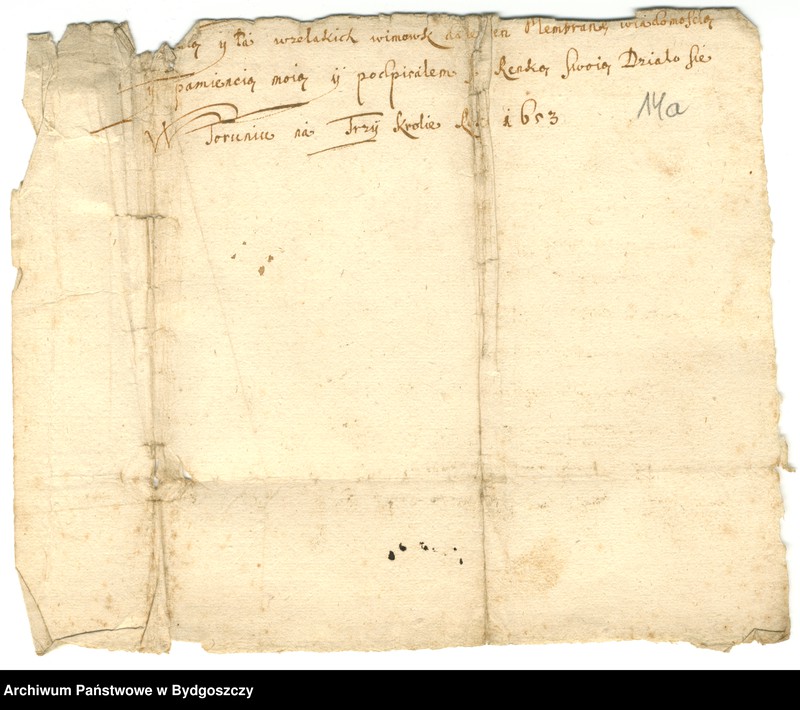 y ta wszlakich wimowk ten Membranę wiadomoscią
y pamiencią moią y podpisałem Renką Swoią Działo sie
W Toruniu na Trzy Krolie R. 1653
14a
Archiwum Państwowe w Bydgoszczy